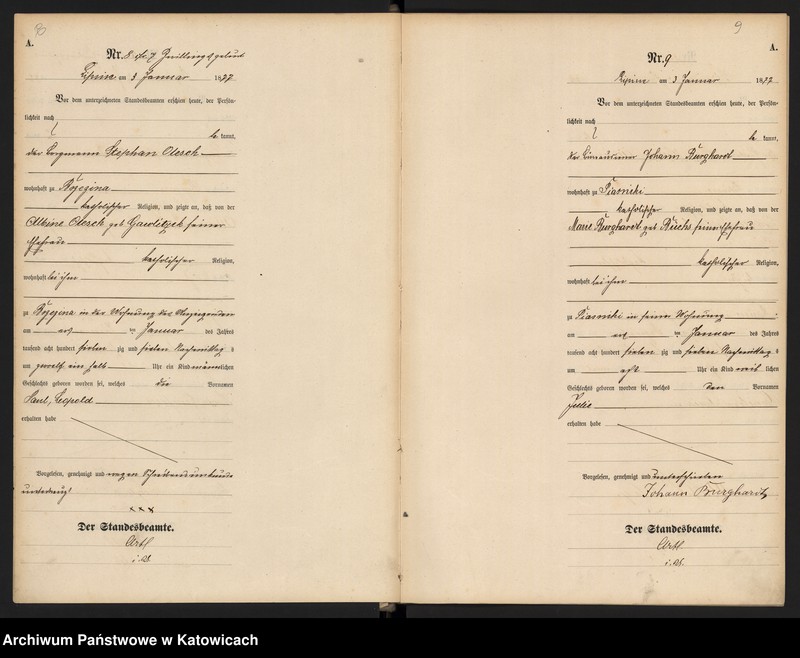 8
A.
Nr. 8 Zwillingsgeburt
Lipine am 3 Januar 1877
Vor dem unterzeichneten Standesbeamten erschien heute, der Persön-
lichkeit nach
be kannt,
der Bergmann Stephan Olesch
wohnhaft zu
katholischer Religion, und zeigte an, daß von der
Albine Olesch geb Gawlitzek seiner
Ehefrau
katholischer Religion,
wohnhaft bei ihm
zu in der Wohnung des
am Januar des Jahres
tausend acht hundert sieben zig und sieben Nachmittag s
um zwölf ein halb Uhr ein Kind männlichen
Geschlechts geboren worden sei, welches die Vornamen
Paul, Leopold
erhalten habe
Vorgelesen, genehmigt und wegen Schreibensunkunde
unterkreuzt
xxx
Der Standesbeamte.
i.V.
9
A.
Nr. 9
Lipine am 3 Januar 1877
Vor dem unterzeichneten Standesbeamten erschien heute, der Persön-
lichkeit nach
be kannt,
der Johann Burghardt
wohnhaft zu Piasniki
katholischer Religion, und zeigte an, daß von der
Marie Burghardt geb seiner Ehefrau
katholischer Religion,
wohnhaft bei ihm
zu Piasniki in seiner Wohnung
am Januar des Jahres
tausend acht hundert sieben zig und sieben Nachmittag s
um acht Uhr ein Kind weib lichen
Geschlechts geboren worden sei, welches den Vornamen
Julie
erhalten habe
Vorgelesen, genehmigt und unterschrieben
Johann Burghardt
Der Standesbeamte.
i.V.
Archiwum Państwowe w Katowicach